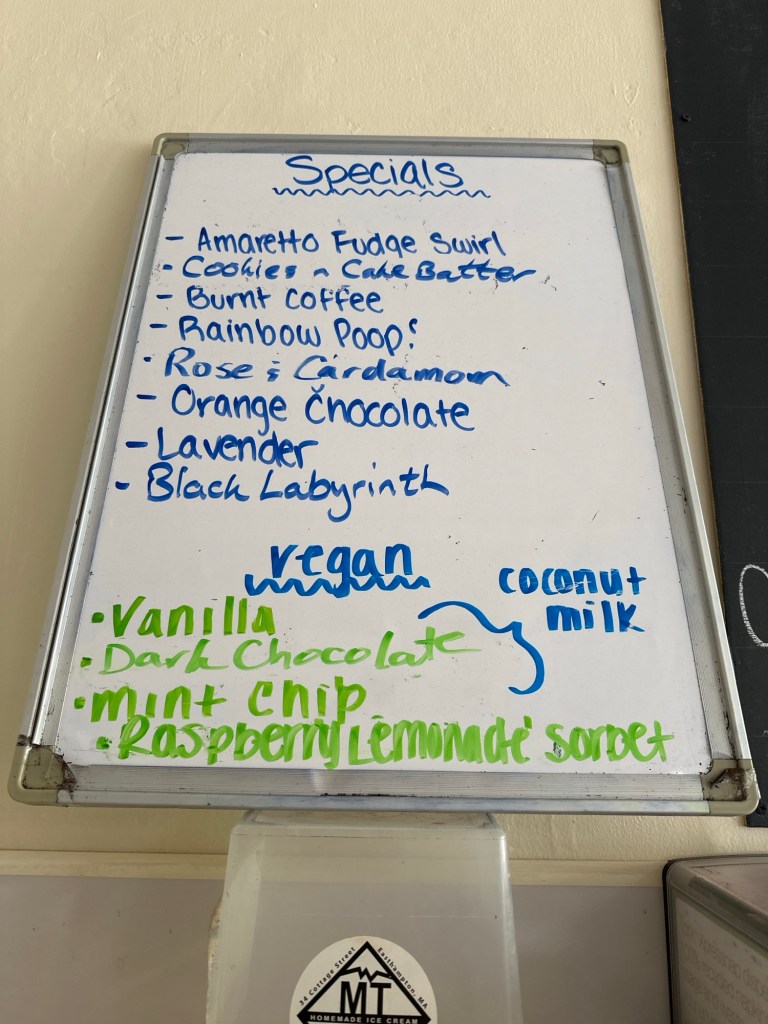 Specials
- Amaretto Fudge Swirl
- Cookies n Cake Batter
- Burnt Coffee
- Rainbow Poop!
- Rose & Cardamom
- Orange Chocolate
- Lavender
- Black Labyrinth
vegan
coconut
milk
• Vanilla
• Dark Chocolate
• mint chip
• Raspberry Lemonade sorbet
34 Cottage Street Easthampton, MA
MT
HOMEMADE ICE CREAM